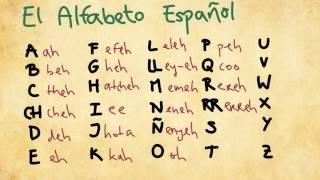 El Alfabeto Español
A aah F efeh L eleh P peh U
B beh G heh LL ey-eh Q coo V
C theh H atcheh M emeh R ereh W
CH cheh I ee N eneh RR erreh X
D deh J hota Ñ enyeh S Y
E eh K kah O oh T Z